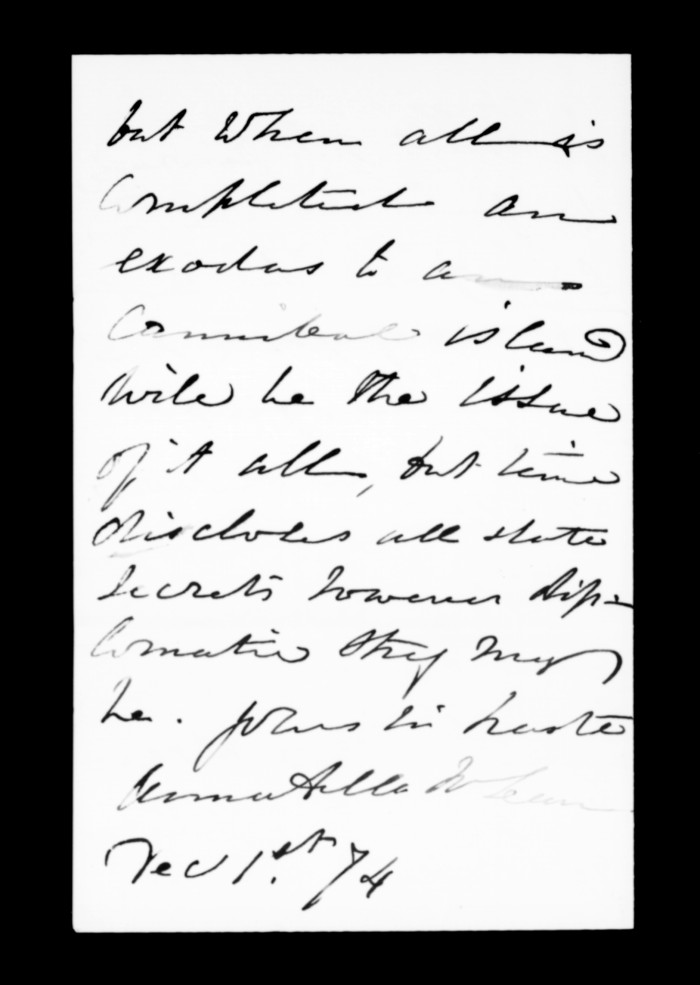 but when all is
completed an
exodus to a
Cannibal island
will be the issue
of it all, but time
discloses all state
secrets however dip-
lomatic they may
be. Yours in haste
Feb 1st. 74